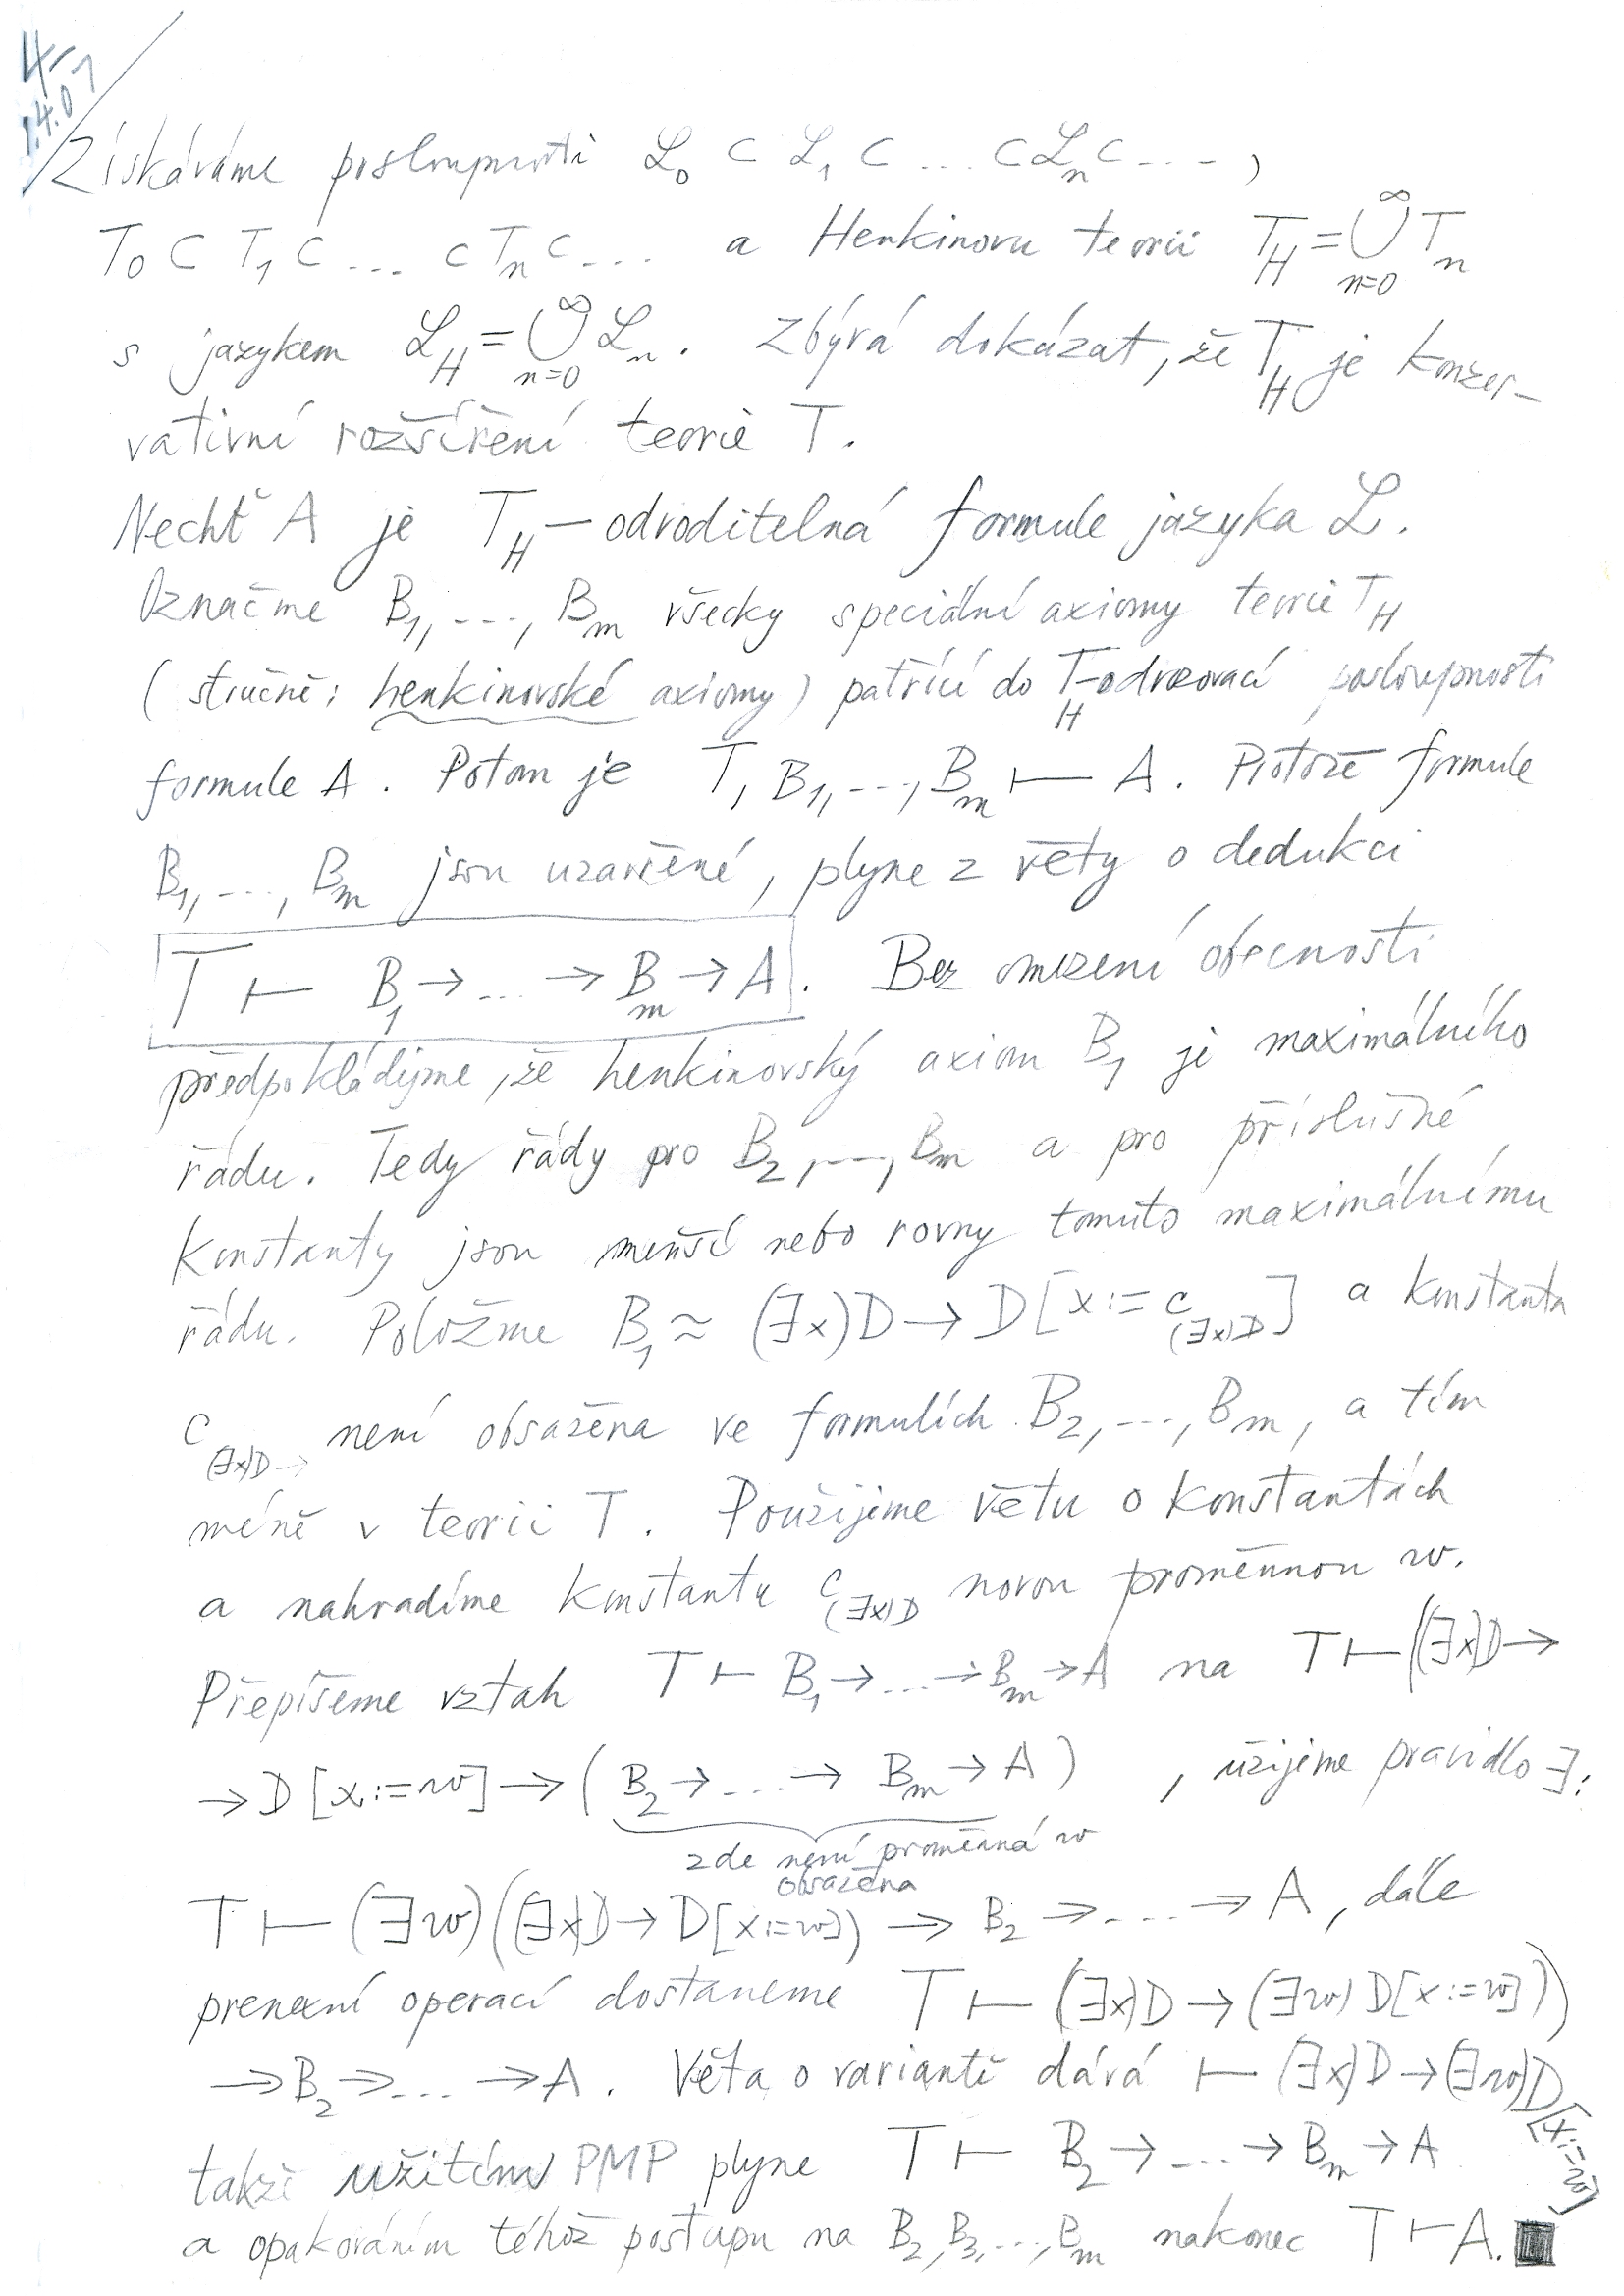 4
1.4.07
Získáváme posloupnosti ℒ₀ ⊂ ℒ₁ ⊂ ... ⊂ ℒₙ ⊂ ... ,
T₀ ⊂ T₁ ⊂ ... ⊂ Tₙ ⊂ ... a Henkinovu teorii T_H = ⋃_{n=0}^∞ Tₙ
s jazykem ℒ_H = ⋃_{n=0}^∞ ℒₙ. Zbývá dokázat, že T_H je konzer-
vativní rozšíření teorie T.
Nechť A je T_H – odvoditelná formule jazyka ℒ.
Označme B₁, ..., Bₘ všecky speciální axiomy teorie T_H
(stručně: henkinovské axiomy) patřící do T_H-odvozovací posloupnosti
formule A. Potom je T, B₁, ..., Bₘ ⊢ A. Protože formule
B₁, ..., Bₘ jsou uzavřené, plyne z věty o dedukci
T ⊢ B₁ → ... → Bₘ → A. Bez omezení obecnosti
předpokládejme, že henkinovský axiom B₁ je maximálního
řádu. Tedy řády pro B₂, ..., Bₘ a pro příslušné
konstanty jsou menší nebo rovny tomuto maximálnímu
řádu. Položme B₁ ≈ (∃x)D → D[x := c_{(∃x)D}] a konstanta
c_{(∃x)D} není obsažena ve formulích B₂, ..., Bₘ, a tím
méně v teorii T. Použijeme větu o konstantách
a nahradíme konstantu c_{(∃x)D} novou proměnnou w.
Přepíšeme vztah T ⊢ B₁ → ... → Bₘ → A na T ⊢ ((∃x)D →
→ D[x := w] → (B₂ → ... → Bₘ → A) , užijeme pravidlo ∃:
zde není proměnná w
obsažena
T ⊢ (∃w)((∃x)D → D[x := w]) → B₂ → ... → A, dále
prenexní operací dostaneme T ⊢ (∃x)D → (∃w) D[x := w])
→ B₂ → ... → A. Věta o variantě dává ⊢ (∃x)D → (∃w)D[x := w]
takže užitím PMP plyne T ⊢ B₂ → ... → Bₘ → A
a opakováním téhož postupu na B₂, B₃, ..., Bₘ nakonec T ⊢ A. ■